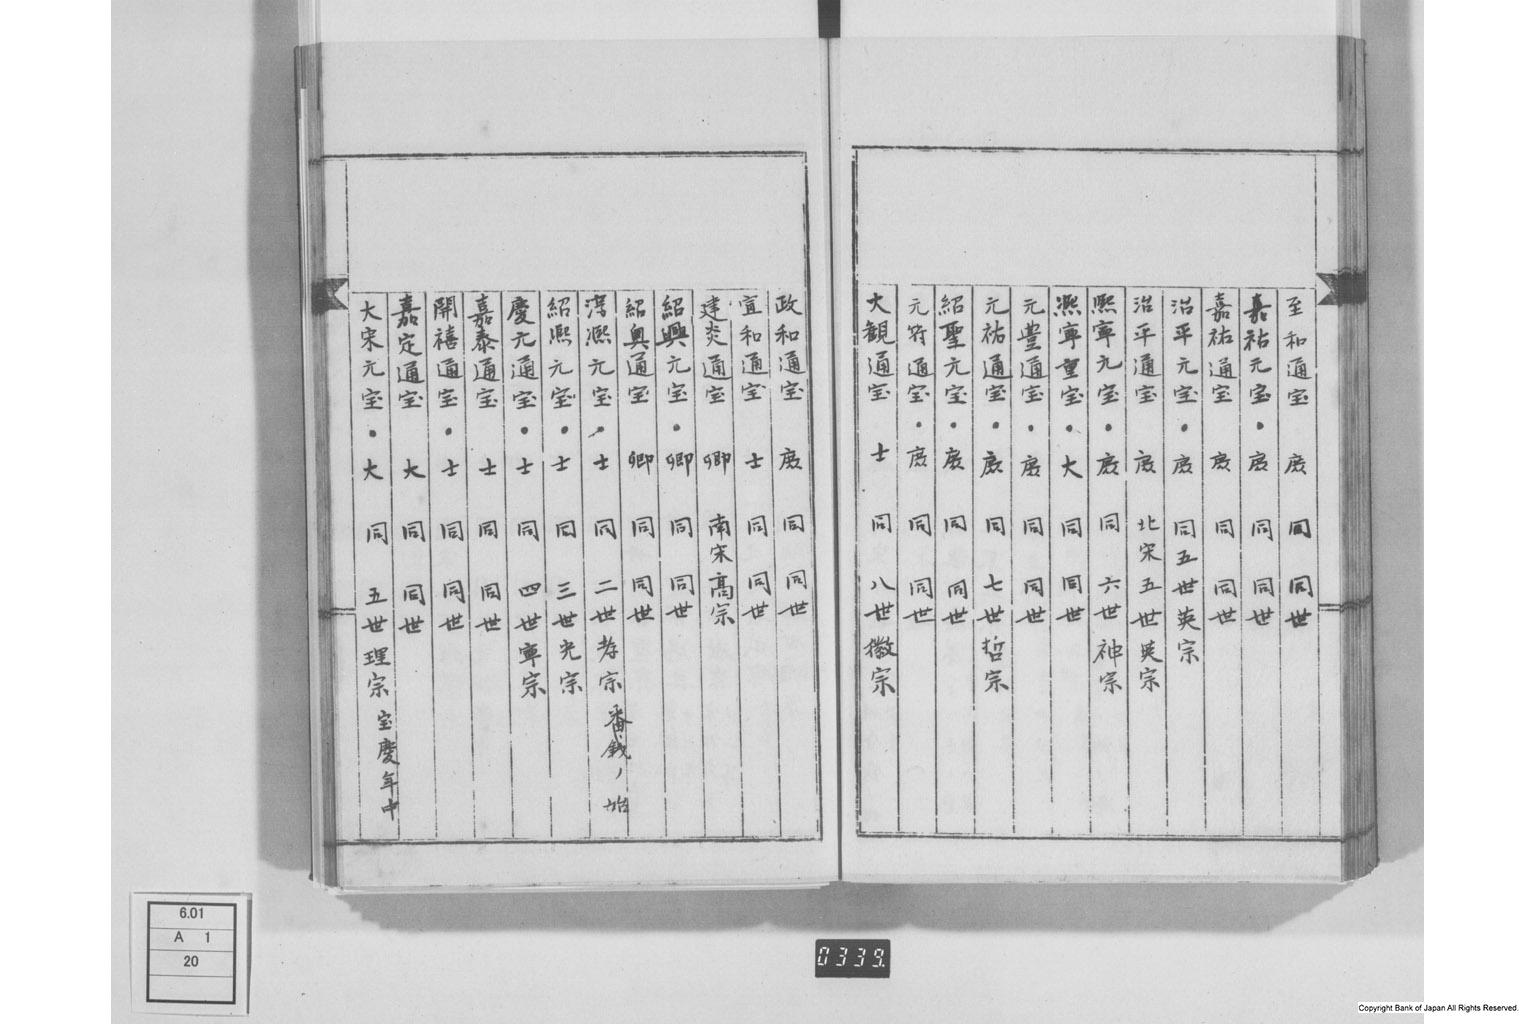 至和通宝 広 同 同世
嘉祐元宝・広 同 同世
嘉祐通宝 広 同 同世
治平元宝・広 同五世英宗
治平通宝 広 北宋五世英宗
熈寧元宝・広 同 六世神宗
熈寧重宝・大 同 同世
元豊通宝・広 同 同世
元祐通宝・広 同 七世哲宗
紹聖元宝・広 同 同世
元符通宝・広 同 同世
大観通宝 士 同 八世徽宗
政和通宝 広 同 同世
宣和通宝 士 同 同世
建炎通宝 卿 南宋高宗
紹興元宝・卿 同 同世
紹興通宝 卿 同 同世
淳熈元宝・士 同 二世孝宗 番銭ノ始
紹熈元宝・士 同 三世光宗
慶元通宝・士 同 四世寧宗
嘉泰通宝 士 同 同世
開禧通宝・士 同 同世
嘉定通宝 大 同 同世
大宋元宝・大 同 五世理宗 宝慶年中
6.01
A 1
20
0339
Copyright Bank of Japan All Rights Reserved.